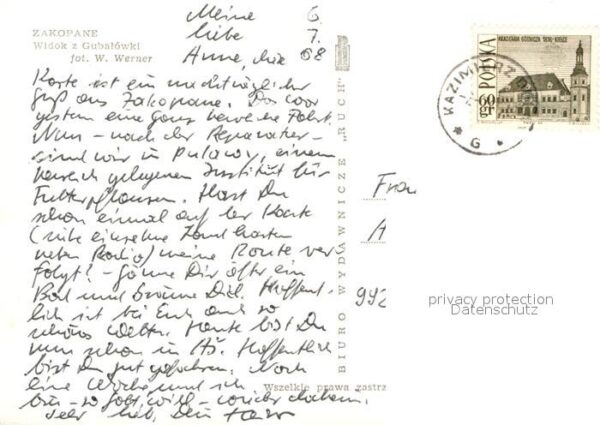 ZAKOPANE
Widok z Gubałówki
fot. W. Werner
Meine 6.
liebe 7.
Anne, die 68
Karte ist ein nachträglicher
Gruß aus Zakopane. Das war
gestern eine ganz Fahrt.
Nun – nach der Reparatur –
sind wir in Pulawy, einem
gelegenen Institut für
Futterpflanzen. Hast Du
schon einmal auf der Karte
(siehe einzelne Landkarten
neben Radio) meine Route ver-
folgt? – gönne Dir öfter ein
Bad und bräune Dich. Hoffent-
lich ist bei Euch auch so
schönes Wetter. Heute bist Du
nun schon in Hoffentlich
bist Du gut gefahren. Noch
eine Woche und ich
bin – so Gott will – wieder daheim.
Sehr lieb, Dein
BIURO WYDAWNICZE „RUCH"
Wszelkie prawa zastrz
Frau
A
992
POLSKA
60 gr
KAZIMIERZ
G
privacy protection
Datenschutz